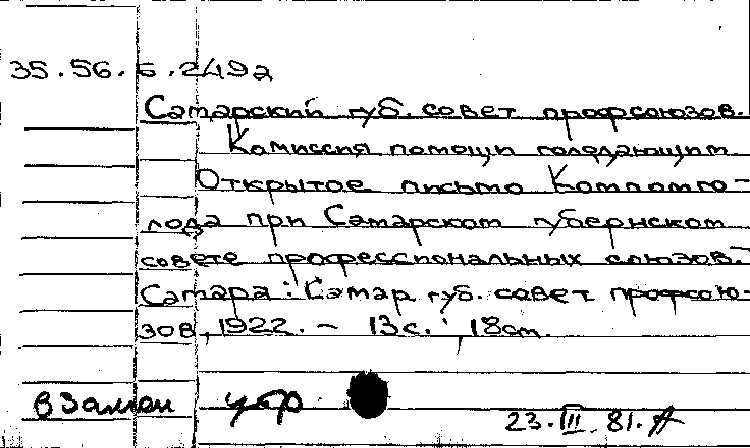 35.56.5.249а
Самарский губ. совет профсоюзов.
Комиссия помощи голодающим
Открытое письмо Компомго-
лода при Самарском губернском
совете профессиональных союзов.-
Самара: Самар. губ. совет профсою-
зов, 1922. - 13 с.; 18 см.
взамен
23.III.81.